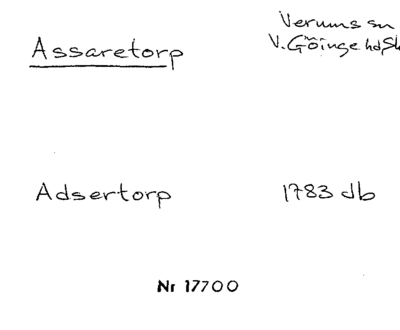 Assaretorp
Verums sn
V. Göinge hd, Sk
Adsertorp 1783 db
Nr 17700